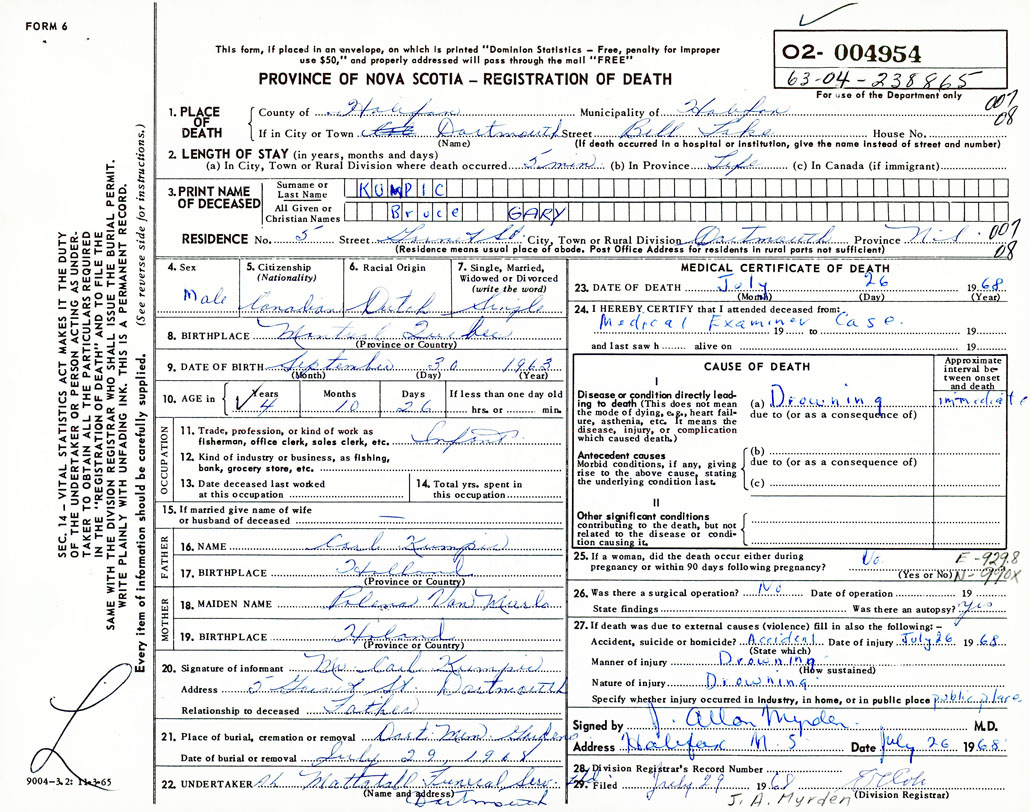 FORM 6
This form, if placed in an envelope, on which is printed "Dominion Statistics – Free, penalty for improper
use $50," and properly addressed will pass through the mail "FREE"
PROVINCE OF NOVA SCOTIA – REGISTRATION OF DEATH
02- 004954
63-04-238865
For use of the Department only
007
08
1. PLACE OF DEATH
County of Halifax Municipality of Halifax
If in City or Town Dartmouth Street Bell Lake House No.
(Name) (If death occurred in a hospital or institution, give the name instead of street and number)
2. LENGTH OF STAY (in years, months and days)
(a) In City, Town or Rural Division where death occurred 5 min. (b) In Province Life (c) In Canada (if immigrant)
3. PRINT NAME OF DECEASED
Surname or Last Name KUMPIC
All Given or Christian Names Bruce GARY
RESIDENCE No. 5 Street St. City, Town or Rural Division Dartmouth Province N.S. 007
(Residence means usual place of abode. Post Office Address for residents in rural parts not sufficient) 08
4. Sex
Male
5. Citizenship
(Nationality)
Canadian
6. Racial Origin
Dutch
7. Single, Married,
Widowed or Divorced
(write the word)
Single
8. BIRTHPLACE Montreal Quebec
(Province or Country)
9. DATE OF BIRTH September 30 1963
(Month) (Day) (Year)
10. AGE in Years Months Days If less than one day old
4 10 26 hrs. or min.
OCCUPATION
11. Trade, profession, or kind of work as
fisherman, office clerk, sales clerk, etc. Infant
12. Kind of industry or business, as fishing,
bank, grocery store, etc.
13. Date deceased last worked
at this occupation
14. Total yrs. spent in
this occupation
15. If married give name of wife
or husband of deceased —
FATHER
16. NAME Carl Kumpic
17. BIRTHPLACE Holland
(Province or Country)
MOTHER
18. MAIDEN NAME Van
19. BIRTHPLACE Holand
(Province or Country)
20. Signature of informant Mr. Carl Kumpic
Address 5 St. Dartmouth
Relationship to deceased Father
21. Place of burial, cremation or removal Dart Mem Gardens
Date of burial or removal July 29 1968
22. UNDERTAKER Mattatall Funeral Serv. Ltd.
(Name and address) Dartmouth
MEDICAL CERTIFICATE OF DEATH
23. DATE OF DEATH July 26 1968
(Month) (Day) (Year)
24. I HEREBY CERTIFY that I attended deceased from:
Medical Examiner Case.
19 to 19
and last saw h alive on 19
CAUSE OF DEATH
Approximate interval between onset and death
I
Disease or condition directly leading to death (This does not mean the mode of dying, e.g., heart failure, asthenia, etc. It means the disease, injury, or complication which caused death.)
(a) Drowning immediate
due to (or as a consequence of)
Antecedent causes
Morbid conditions, if any, giving rise to the above cause, stating the underlying condition last.
(b)
due to (or as a consequence of)
(c)
II
Other significant conditions
contributing to the death, but not related to the disease or condition causing it.
25. If a woman, did the death occur either during
pregnancy or within 90 days following pregnancy? No
(Yes or No)
E-929.8
N-990X
26. Was there a surgical operation? No Date of operation 19
State findings Was there an autopsy? yes
27. If death was due to external causes (violence) fill in also the following: –
Accident, suicide or homicide? Accident Date of injury July 26 1968
(State which)
Manner of injury Drowning
(How sustained)
Nature of injury Drowning
Specify whether injury occurred in industry, in home, or in public place public place
Signed by J. Allan Myrden M.D.
Address Halifax N.S. Date July 26 1968
28. Division Registrar's Record Number
29. Filed July 29 1968
(Division Registrar)
J. A. Myrden
SEC. 14 – VITAL STATISTICS ACT MAKES IT THE DUTY
OF THE UNDERTAKER OR PERSON ACTING AS UNDER-
TAKER TO OBTAIN ALL THE PARTICULARS REQUIRED
IN THE "REGISTRATION OF DEATH" AND TO FILE THE
SAME WITH THE DIVISION REGISTRAR WHO SHALL ISSUE THE BURIAL PERMIT.
WRITE PLAINLY WITH UNFADING INK. THIS IS A PERMANENT RECORD.
Every item of information should be carefully supplied. (See reverse side for instructions.)
9004-3.2: 11-3-65